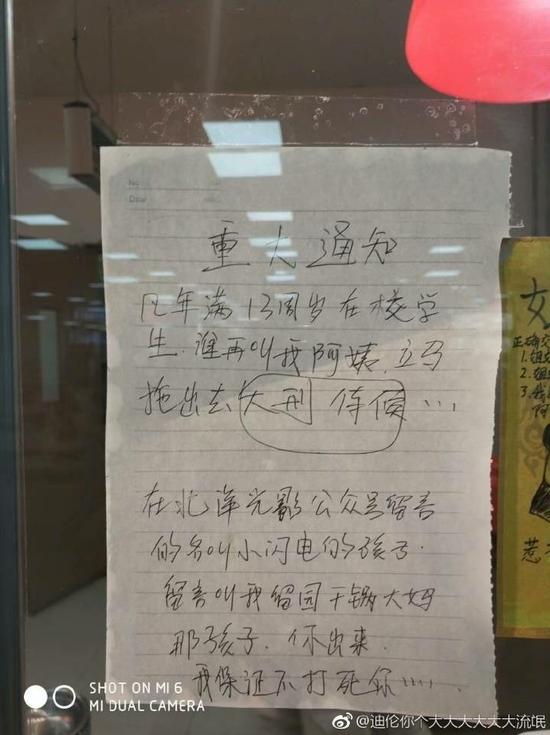 No
Date
重大通知
凡年满13周岁在校学
生.谁再叫我阿姨.立马
拖出去大刑 侍候…
在北洋光影公众号留言
的名叫小闪电的孩子.
留言叫我留园干锅大妈
那孩子.你出来.
我保证不打死你……
女
正确交
1.姐
2.姐
3.我
阿
惹
SHOT ON MI 6
MI DUAL CAMERA
@迪伦你个大大大大大大流氓